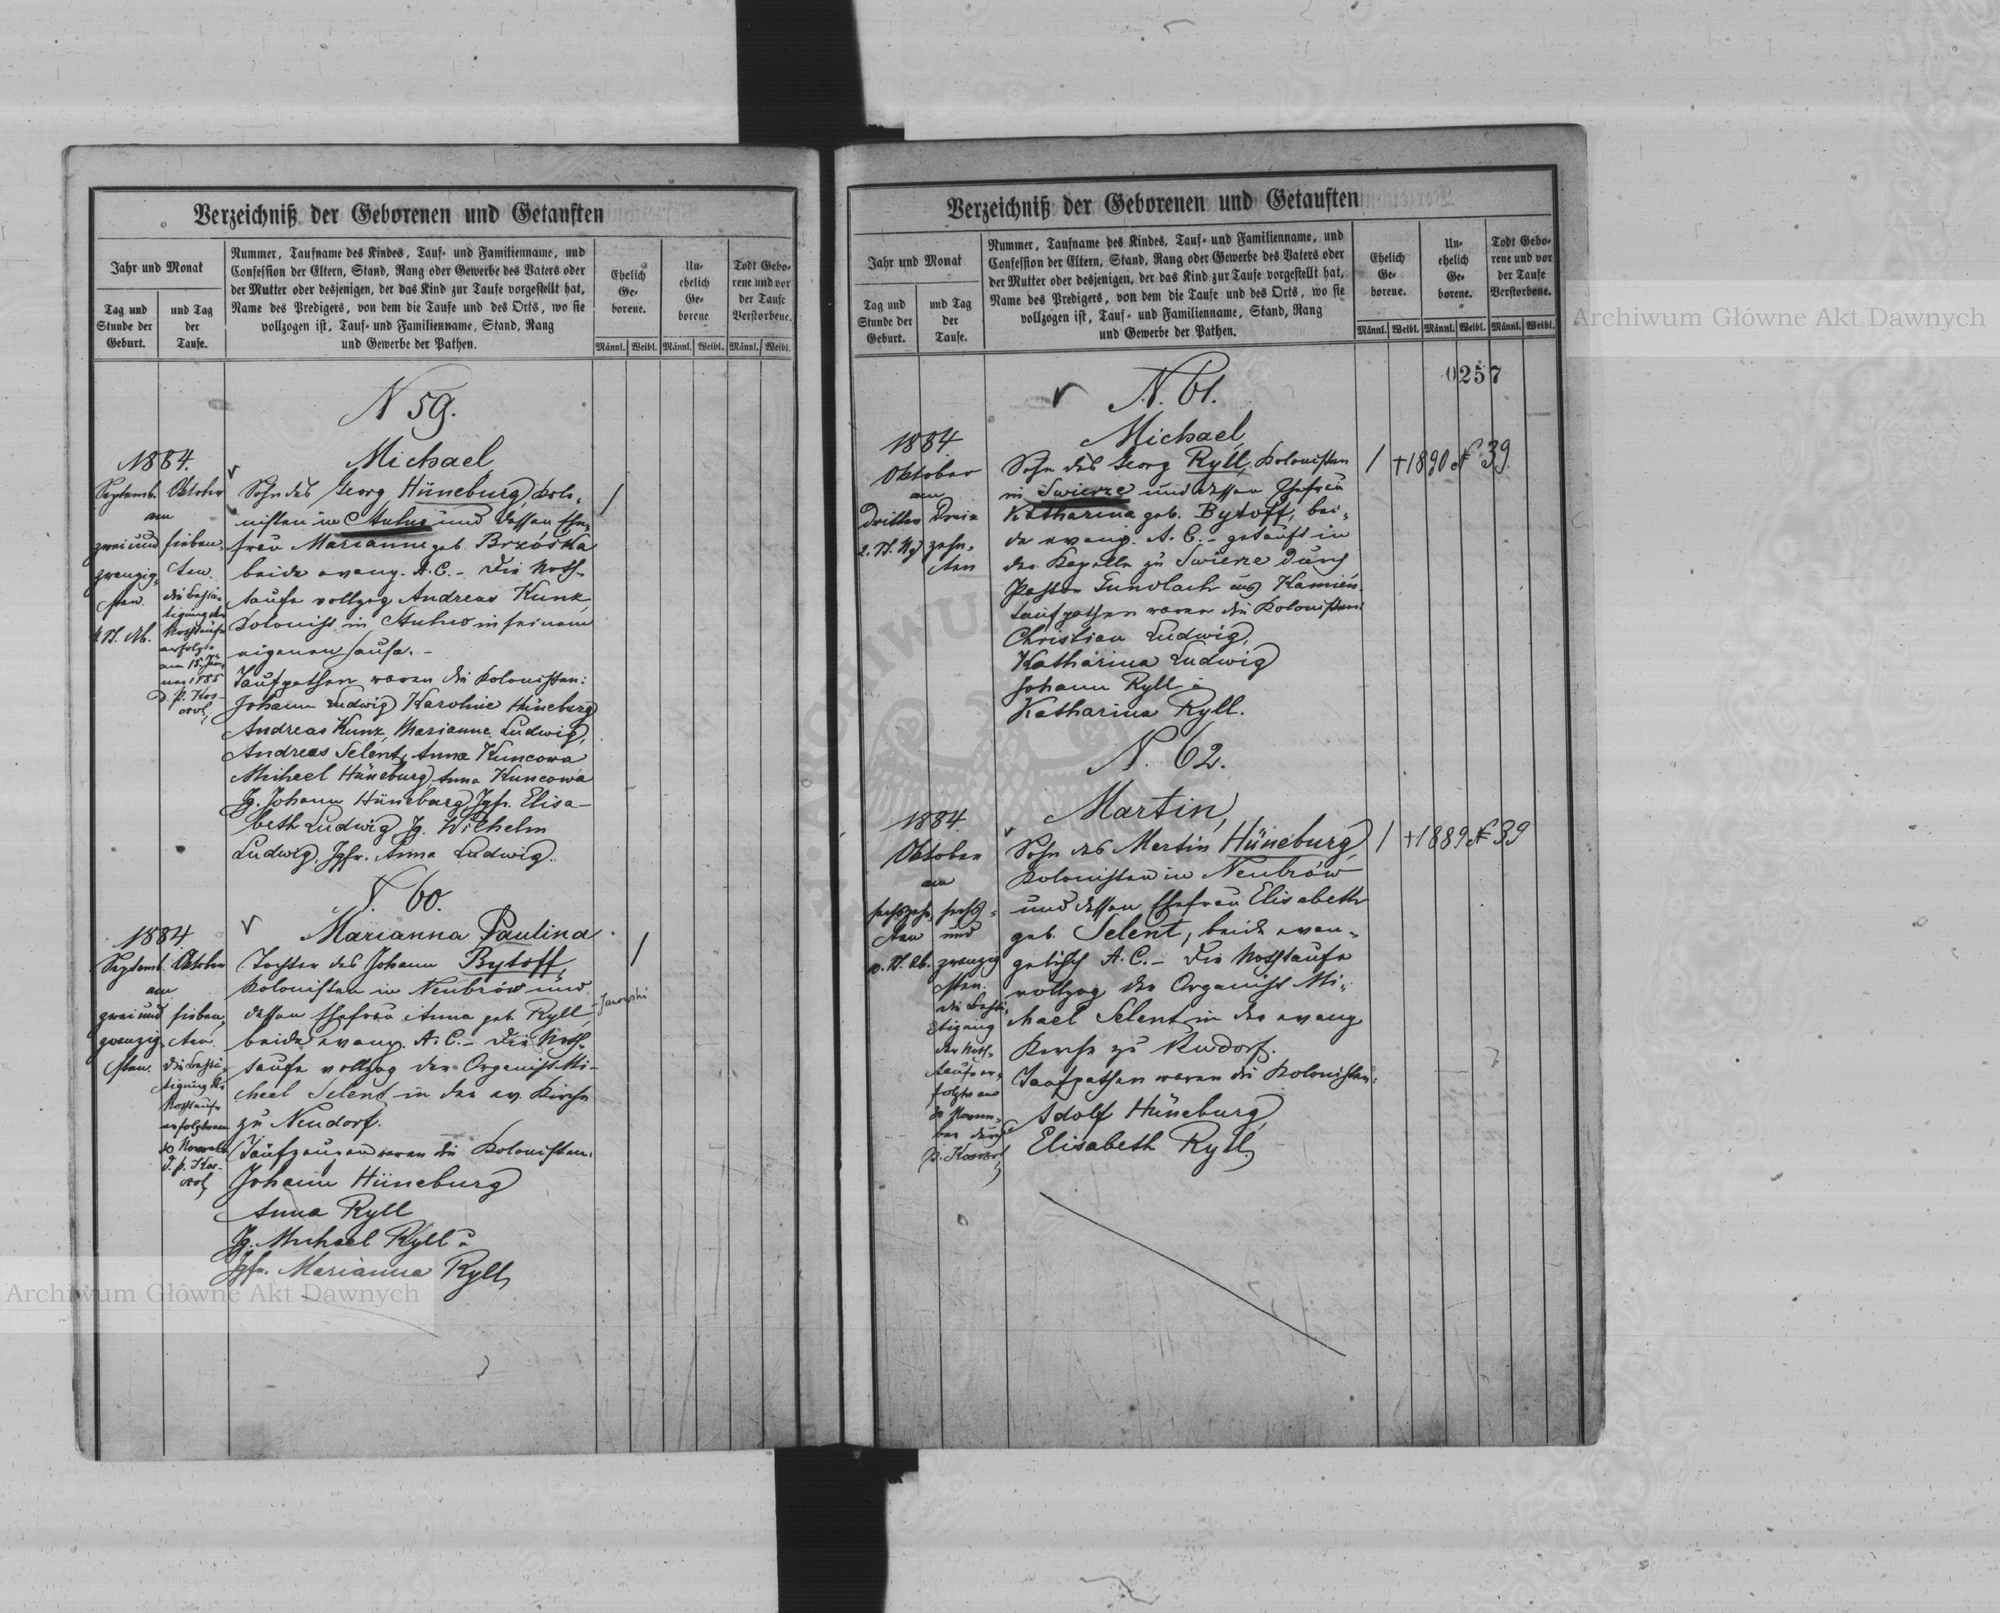 Verzeichniß der Geborenen und Getauften
Jahr und Monat
Tag und
Stunde der
Geburt.
und Tag
der
Taufe.
Nummer, Taufname des Kindes, Tauf- und Familienname, und
Confession der Eltern, Stand, Rang oder Gewerbe des Vaters oder
der Mutter oder desjenigen, der das Kind zur Taufe vorgestellt hat,
Name des Predigers, von dem die Taufe und des Orts, wo sie
vollzogen ist, Tauf- und Familienname, Stand, Rang
und Gewerbe der Pathen.
Ehelich
Ge-
borene.
Un-
ehelich
Ge-
borene
Todt Gebo-
rene und vor
der Taufe
Verstorbene.
Männl. Weibl. Männl. Weibl. Männl. Weibl.
N 59.
1884.
Septemb. Oktober
am
zwei und sieben-
zwanzig- ten.
sten.
4 U. Ab.
die Bestä-
tigung der
Nothtaufe
erfolgte
am 18. Jan.
uar 1885
d. P. Kos-
Michael,
Sohn des Georg Hüneburg, Kolo-
nisten in Kulno und dessen Ehe-
frau Marianne geb. Brzóska
beide evang. A. C. – Die Noth-
taufe vollzog Andreas Kunz,
Kolonist in Kulno in seinem
eigenen Hause. –
Taufpathen waren die Kolonisten:
Johann Ludwig, Karoline Hüneburg
Andreas Kunz, Marianne Ludwig,
Andreas Selent, Anna Kuncowa
Micheel Hüneburg, Anna Kuncowa
Jg. Johann Hüneburg, Jgfr. Elisa-
beth Ludwig, Jg. Wilhelm
Ludwig, Jgfr. Anna Ludwig.
N. 60.
1884
Septemb. Oktober
am
zwei und sieben-
zwanzig- ten.
sten.
die Bestä-
tigung der
Nothtaufe
erfolgte am
30 Novemb.
d. P. Kos-
Marianna Paulina
Tochter des Johann Bytoff,
Kolonisten in Neubrów und
dessen Ehefrau Anna geb. Ryll,
beide evang. A. C. – Die Noth-
taufe vollzog der Organist Mi-
cheel Selent in der ev. Kirche
zu Neudorf.
Taufzeugen waren die Kolonisten:
Johann Hüneburg
Anna Ryll
Jg. Micheel Ryll u
Jgfr. Marianna Ryll,
Archiwum Główne Akt Dawnych
Verzeichniß der Geborenen und Getauften
Jahr und Monat
Tag und
Stunde der
Geburt.
und Tag
der
Taufe.
Nummer, Taufname des Kindes, Tauf- und Familienname, und
Confession der Eltern, Stand, Rang oder Gewerbe des Vaters oder
der Mutter oder desjenigen, der das Kind zur Taufe vorgestellt hat,
Name des Predigers, von dem die Taufe und des Orts, wo sie
vollzogen ist, Tauf- und Familienname, Stand, Rang
und Gewerbe der Pathen.
Ehelich
Ge-
borene.
Un-
ehelich
Ge-
borene.
Todt Gebo-
rene und vor
der Taufe
Verstorbene.
Männl. Weibl. Männl. Weibl. Männl. Weibl.
Archiwum Główne Akt Dawnych
0257
N. 61.
1884.
Oktober
am
dritten Drei-
zehn-
ten
Michael,
Sohn des Georg Ryll, Kolonisten
in Swierze und dessen Ehefrau
Katharina geb. Bytoff, bei-
de evang. A. C. – getauft in
der Kapelle zu Swierze durch
Pastor Gundlach aus Kamień.
Taufpathen waren die Kolonisten:
Christian Ludwig,
Katharina Ludwig
Johann Ryll u
Katharina Ryll.
† 1890 N 39
N. 62.
1884.
Oktober
am
sechszehn- sechs-
ten und
zwanzig
sten.
die Bestä-
tigung
der Noth-
taufe er-
folgte am
30 Novem-
ber durch
Martin,
Sohn des Martin Hüneburg,
Kolonisten in Neubrów
und dessen Ehefrau Elisabeth
geb. Selent, beide evan-
gelisch A. C. – Die Nothtaufe
vollzog der Organist Mi-
chael Selent in der evang
Kirche zu Neudorf.
Taufpathen waren die Kolonisten:
Adolf Hüneburg,
Elisabeth Ryll,
† 1889 N 39